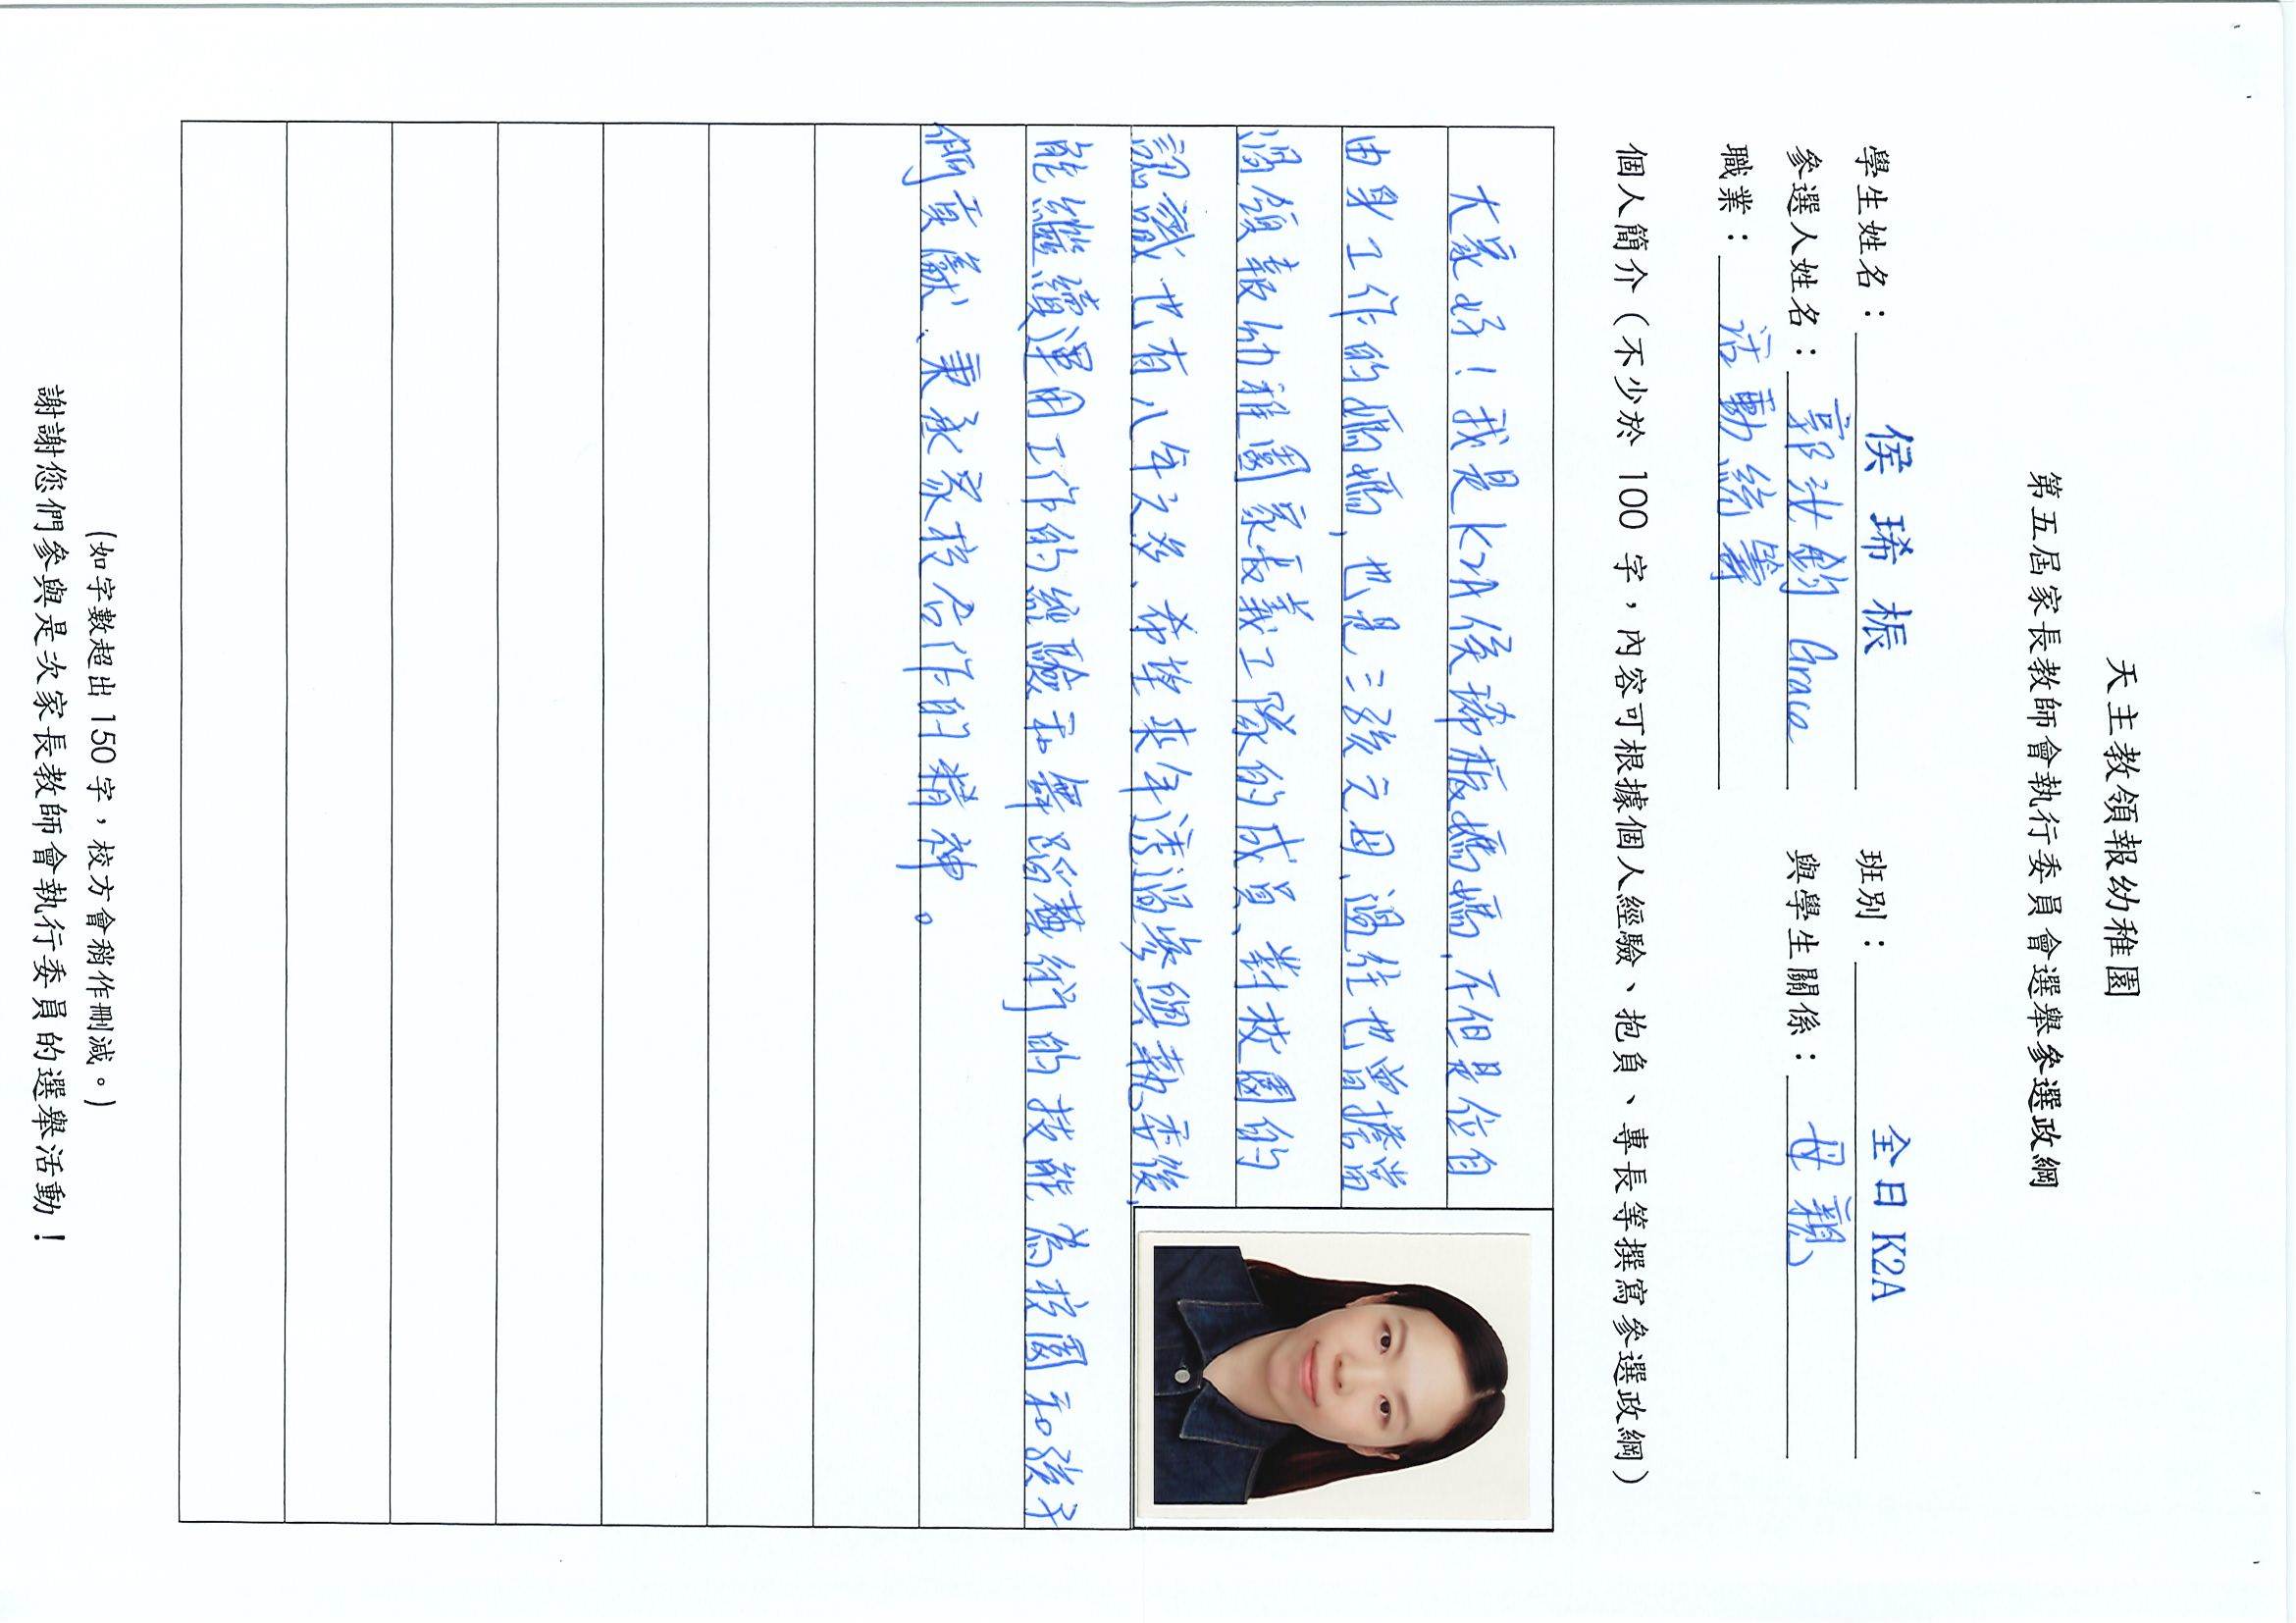 天主教領報幼稚園
第五屆家長教師會執行委員會選舉參選政綱
學生姓名：侯琋桭 班別：全日K2A
參選人姓名：郭 鈞 Grace 與學生關係：母親
職業：活動統籌
個人簡介（不少於 100 字，內容可根據個人經驗、抱負、專長等撰寫參選政綱）
大家好！我是K2A侯琋桭媽媽，不但是位自
由身工作的媽媽，也是三孩之母，過往也曾擔當
過領報幼稚園家長義工隊的成員，對校園的
認識也有八年之多，希望來年透過參與執委後，
能繼續運用工作的經驗和舞蹈藝術的技能為校園和孩子
們貢獻，秉承家校合作的精神。
(如字數超出 150 字，校方會稍作刪減。)
謝謝您們參與是次家長教師會執行委員的選舉活動！